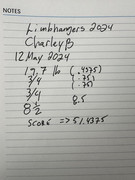 NOTES
Limbhangers 2024
Charley B
12 May 2024
19, 7 lb (.4375)
3/4 (.75)
3/4 (.75)
8 1/2 8.5
Score => 51.4375